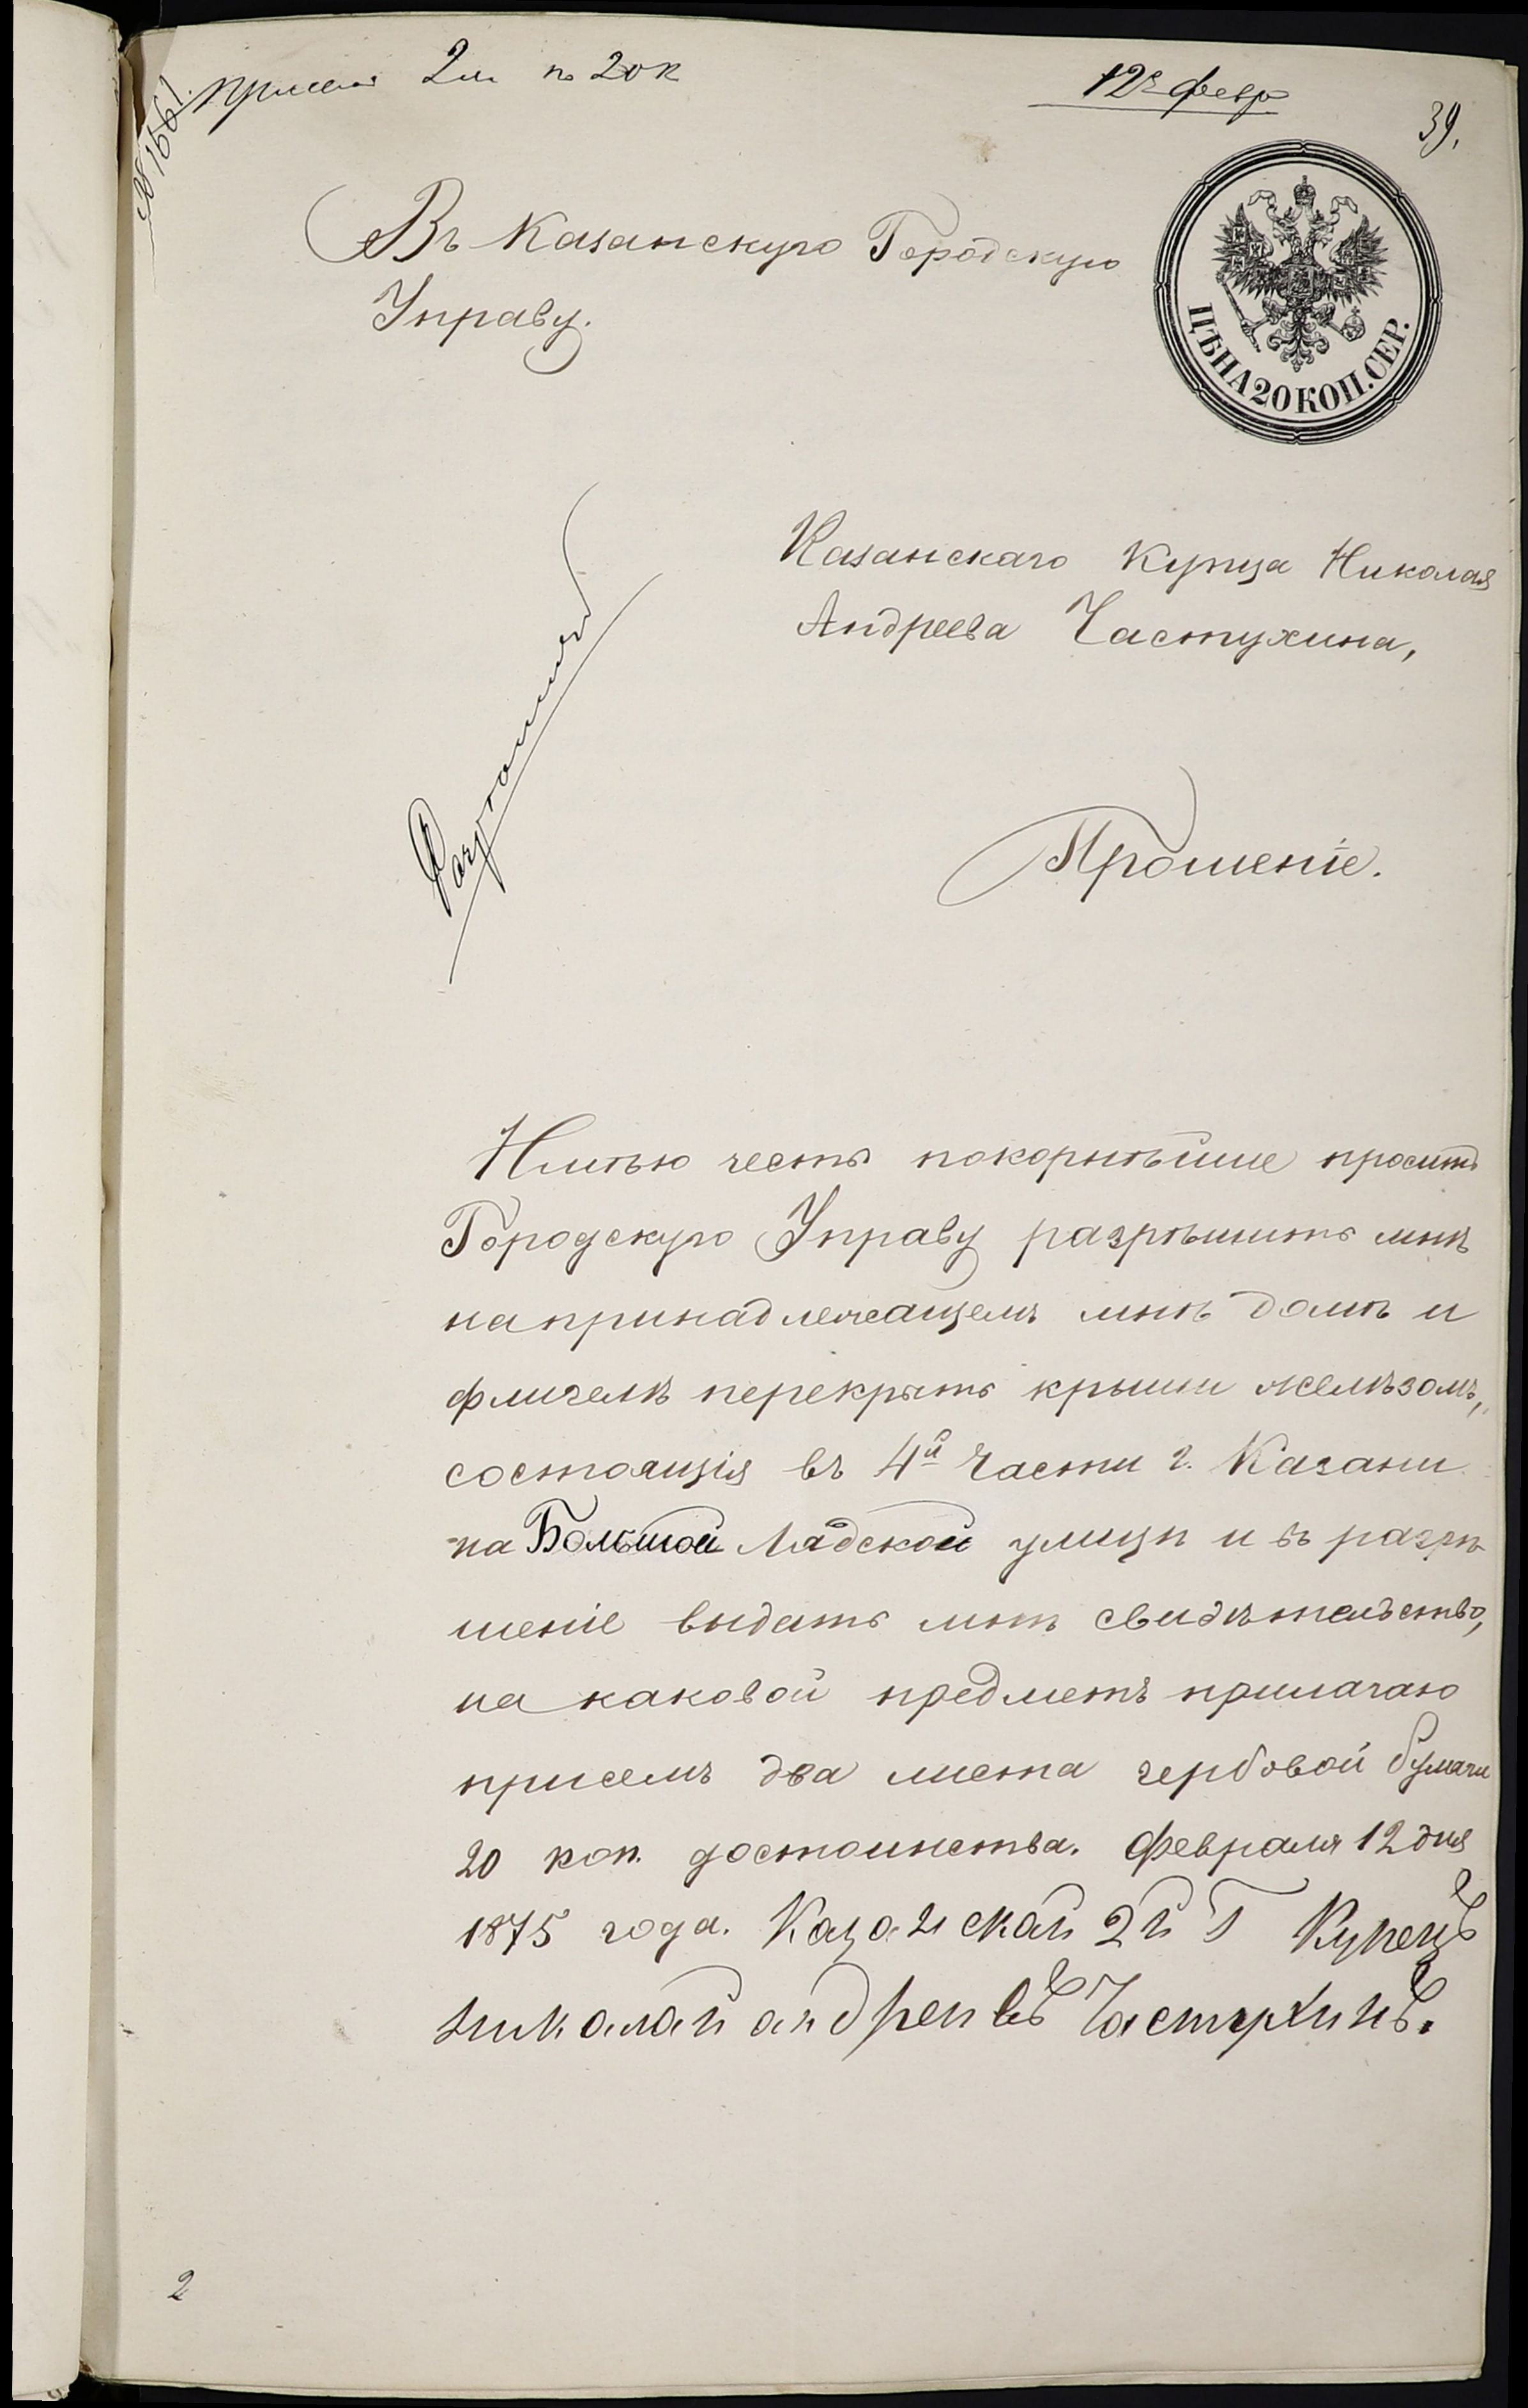 № 1661.
2 л. по 20 к
12го февр
39.
Въ Казанскую Городскую
Управу.
ЦѢНА 20 КОП. СЕР.
Казанскаго Купца Николая
Андреева Частухина,
Разрѣшить
Прошеніе.
Имѣю честь покорнѣйше просить
Городскую Управу разрѣшить мнѣ
на принадлежащемъ мнѣ домѣ и
флигелѣ перекрыть крыши желѣзомъ,
состоящія въ 4й Части г. Казани
на Большой Лядской улицѣ и въ разрѣ
шеніе выдать мнѣ свидѣтельство,
на каковой предметъ прилагаю
присемъ два листа гербовой бумаги
20 коп. достоинства. Февраля 12 дня
1875 года. Казанской 2й Г Купецъ
николай андреивъ Частухинъ.
2